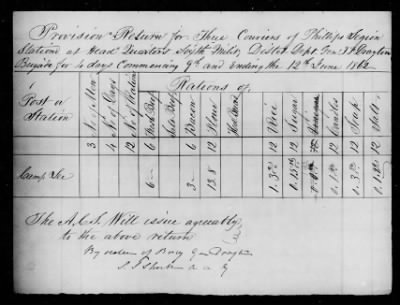 Provision Return for Three Couriers of Phillips Legion
Stationed at Head Quarters Sixth Milty District Dept Gen. Drayton
Brigade for 4 days Commencing 9th and Ending the 12th June 1862
Rations of
Post or Station
No of Men
No of Days
No of Rations
Fresh Beef
Salt Beef
Bacon
Flour
Hd Bread
Rice
Sugar
Candles
Soap
Salt
3 4 12 6 6 12 12 12 12 12 12
Camp
6 3 13.8
The A.C.S. Will issue agreeably
to the above return
By order of Brig Gen Drayton